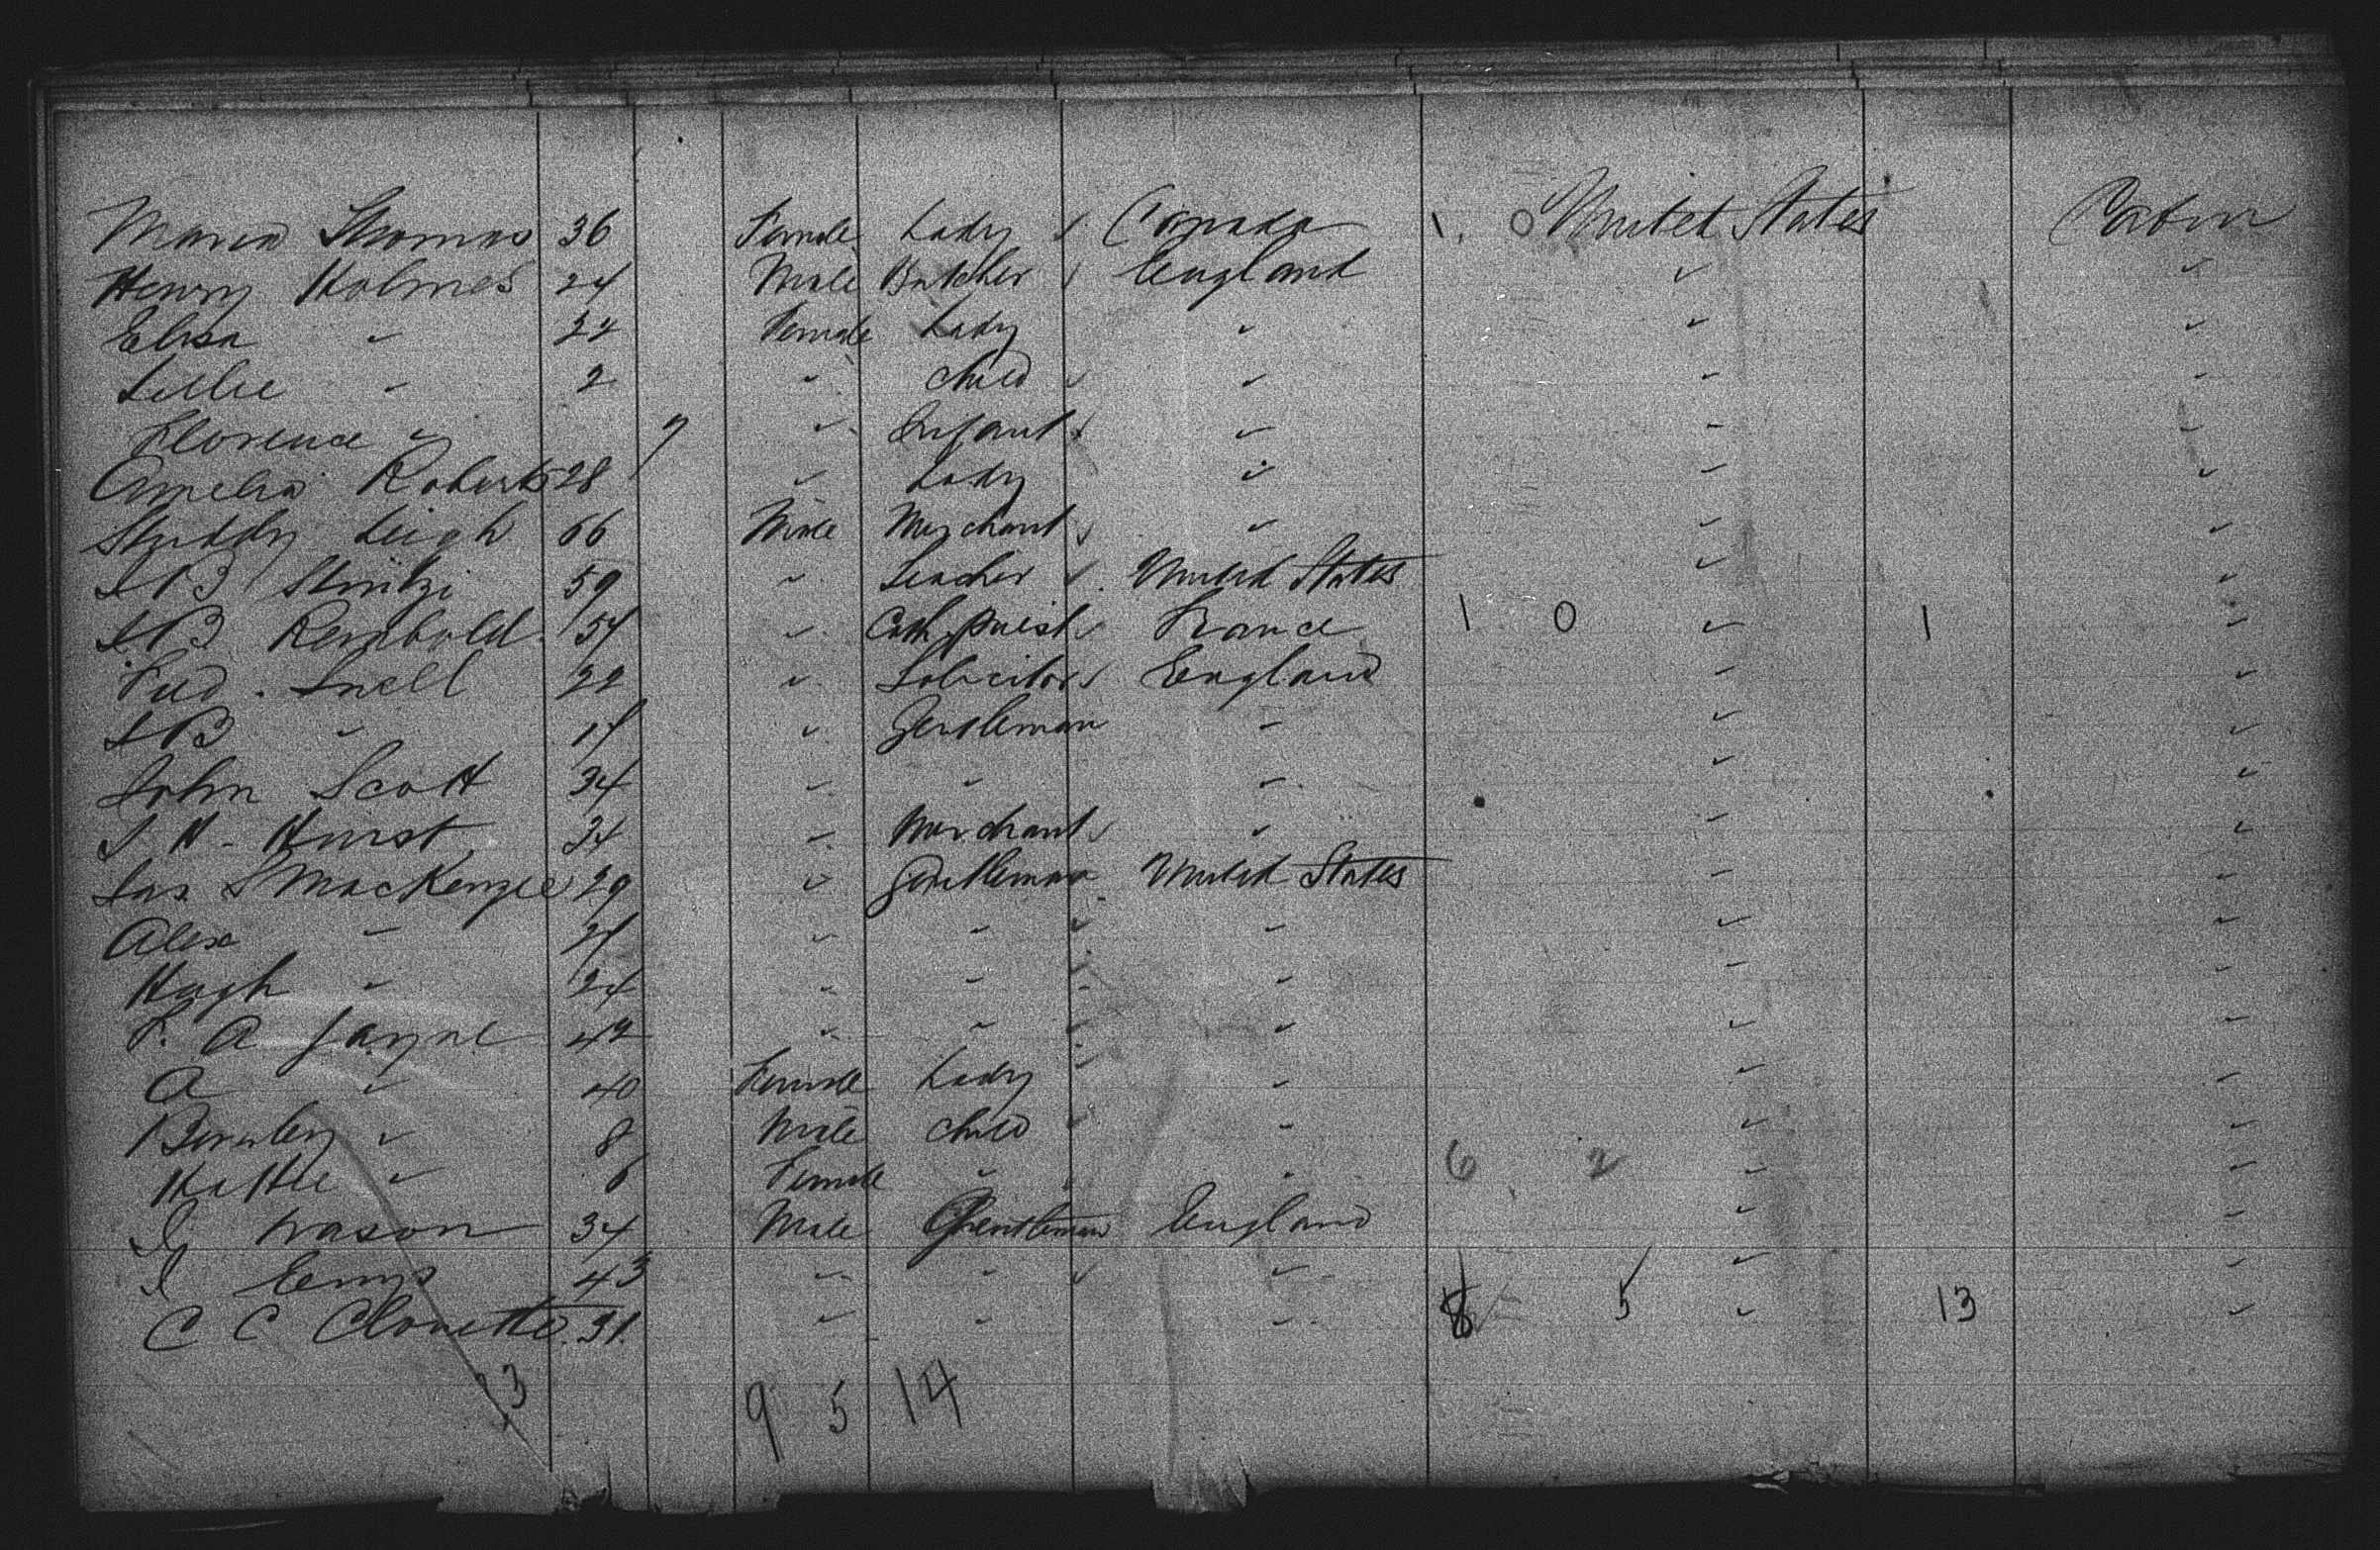 Maria Thomas 36 Female Lady Canada 1. 0 United States Cabin
Henry Holmes 24 Male Butcher England " "
Elisa " 24 Female Lady " " "
Lillie " 2 " child " " "
Florence " 9 " Infant " " "
Amelia Roberts 28 " Lady " " "
Studdy Leigh 66 Male Merchant " " "
59 " Teacher United States " "
J B Rembold 54 " Cath priest France 1 0 " 1 "
Fred. Snell 22 " Solicitor England " "
J B " 17 " Gentleman " " "
John Scott 34 " " " " "
J. H. Hurst 34 " Merchant " " "
Jas. S MacKenzie 29 " Gentleman United States " "
Alex " 21 " " " " "
Hugh " 24 " " " " "
F. A Jayne 42 " " " " "
A " 40 Female Lady " " "
" 8 Male child " " "
Hattie " 6 Female " " 6 2 " "
J. Wason 34 Male Gentleman England " "
J 43 " " " " "
C C 31. " " " 8 5 " 13 "
23 9 5 14